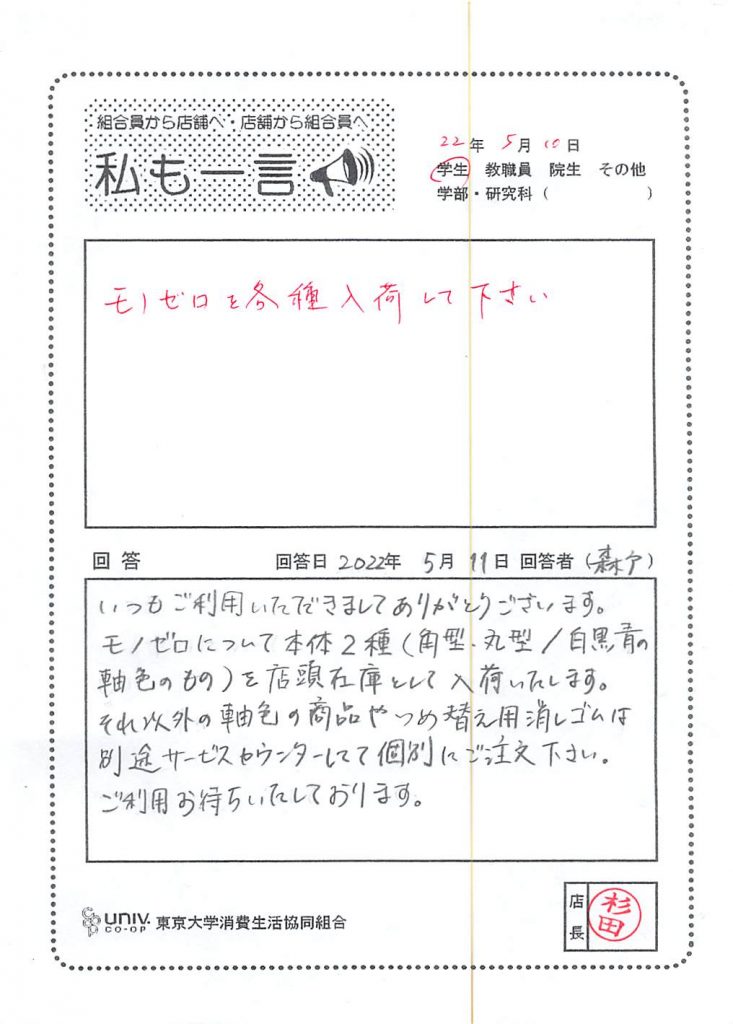 組合員から店舗へ・店舗から組合員へ
私も一言
22年 5月 10日
学生 教職員 院生 その他
学部・研究科( )
モノゼロを各種入荷して下さい
回答 回答日 2022年 5月 11日 回答者(森下)
いつもご利用いただきましてありがとうございます。
モノゼロについて本体2種(角型、丸型/白黒青の
軸色のもの)を店頭在庫として入荷いたします。
それ以外の軸色の商品やつめ替え用消しゴムは
別途サービスカウンターにて個別にご注文下さい。
ご利用お待ちいたしております。
co-op UNIV. CO-OP 東京大学消費生活協同組合
店長 杉田